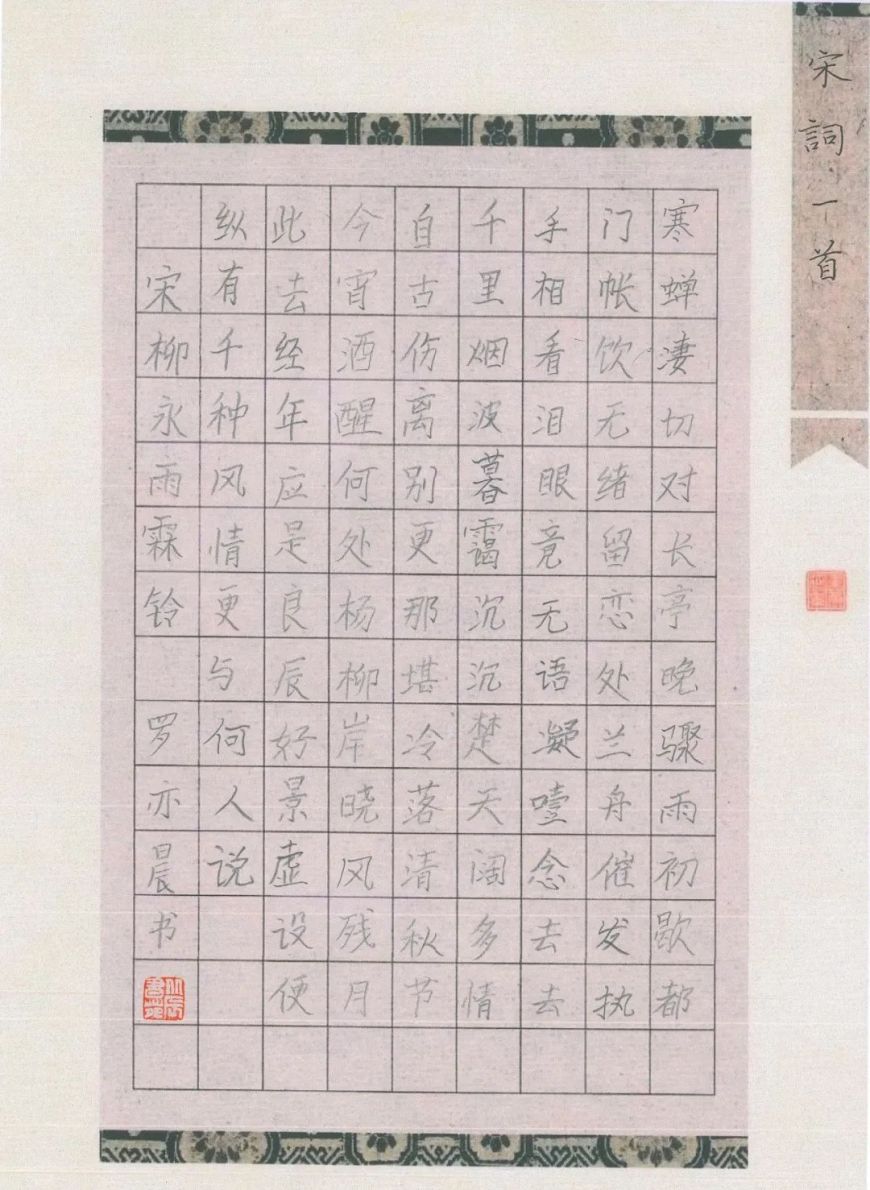 宋詞一首
寒蝉凄切对长亭晚骤雨初歇都
门帐饮无绪留恋处兰舟催发执
手相看泪眼竟无语凝噎念去去
千里烟波暮霭沉沉楚天阔多情
自古伤离别更那堪冷落清秋节
今宵酒醒何处杨柳岸晓风残月
此去经年应是良辰好景虚设便
纵有千种风情更与何人说
宋柳永雨霖铃 罗亦晨书